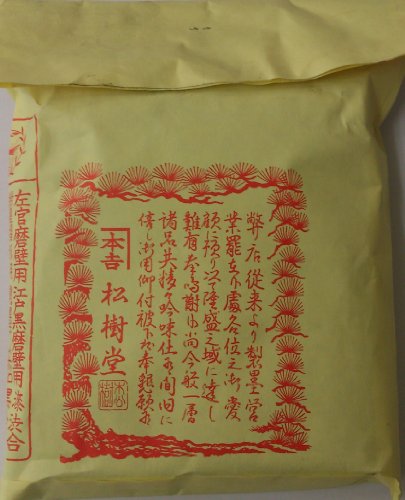 弊店従来より製墨営
業罷在候處各位之御愛
顧に預り次て隆盛之域に達し
難有奉鳴謝候尚今般一層
諸品共精々吟味仕候間旧に
倍し御用御付被下度奉懇願候
本吉 松樹堂
左官磨壁用 江戸黒磨壁用 漆渋合